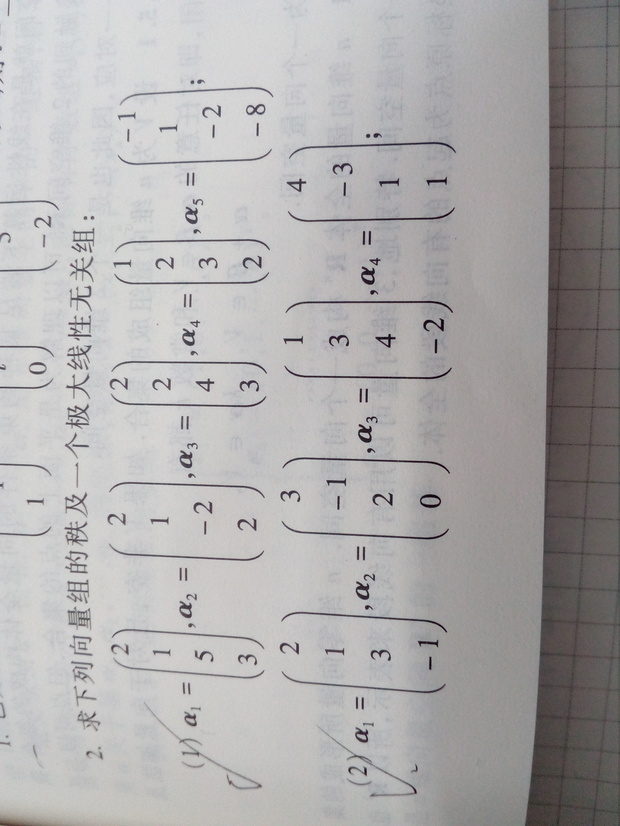 1
0
-2
2. 求下列向量组的秩及一个极大线性无关组：
(1) α₁ = (2, 1, 5, 3), α₂ = (2, 1, -2, 2), α₃ = (2, 2, 4, 3), α₄ = (1, 2, 3, 2), α₅ = (-1, 1, -2, -8);
(2) α₁ = (2, 1, 3, -1), α₂ = (3, -1, 2, 0), α₃ = (1, 3, 4, -2), α₄ = (4, -3, 1, 1);